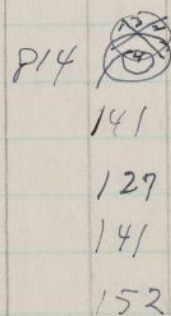 814
141
127
141
152